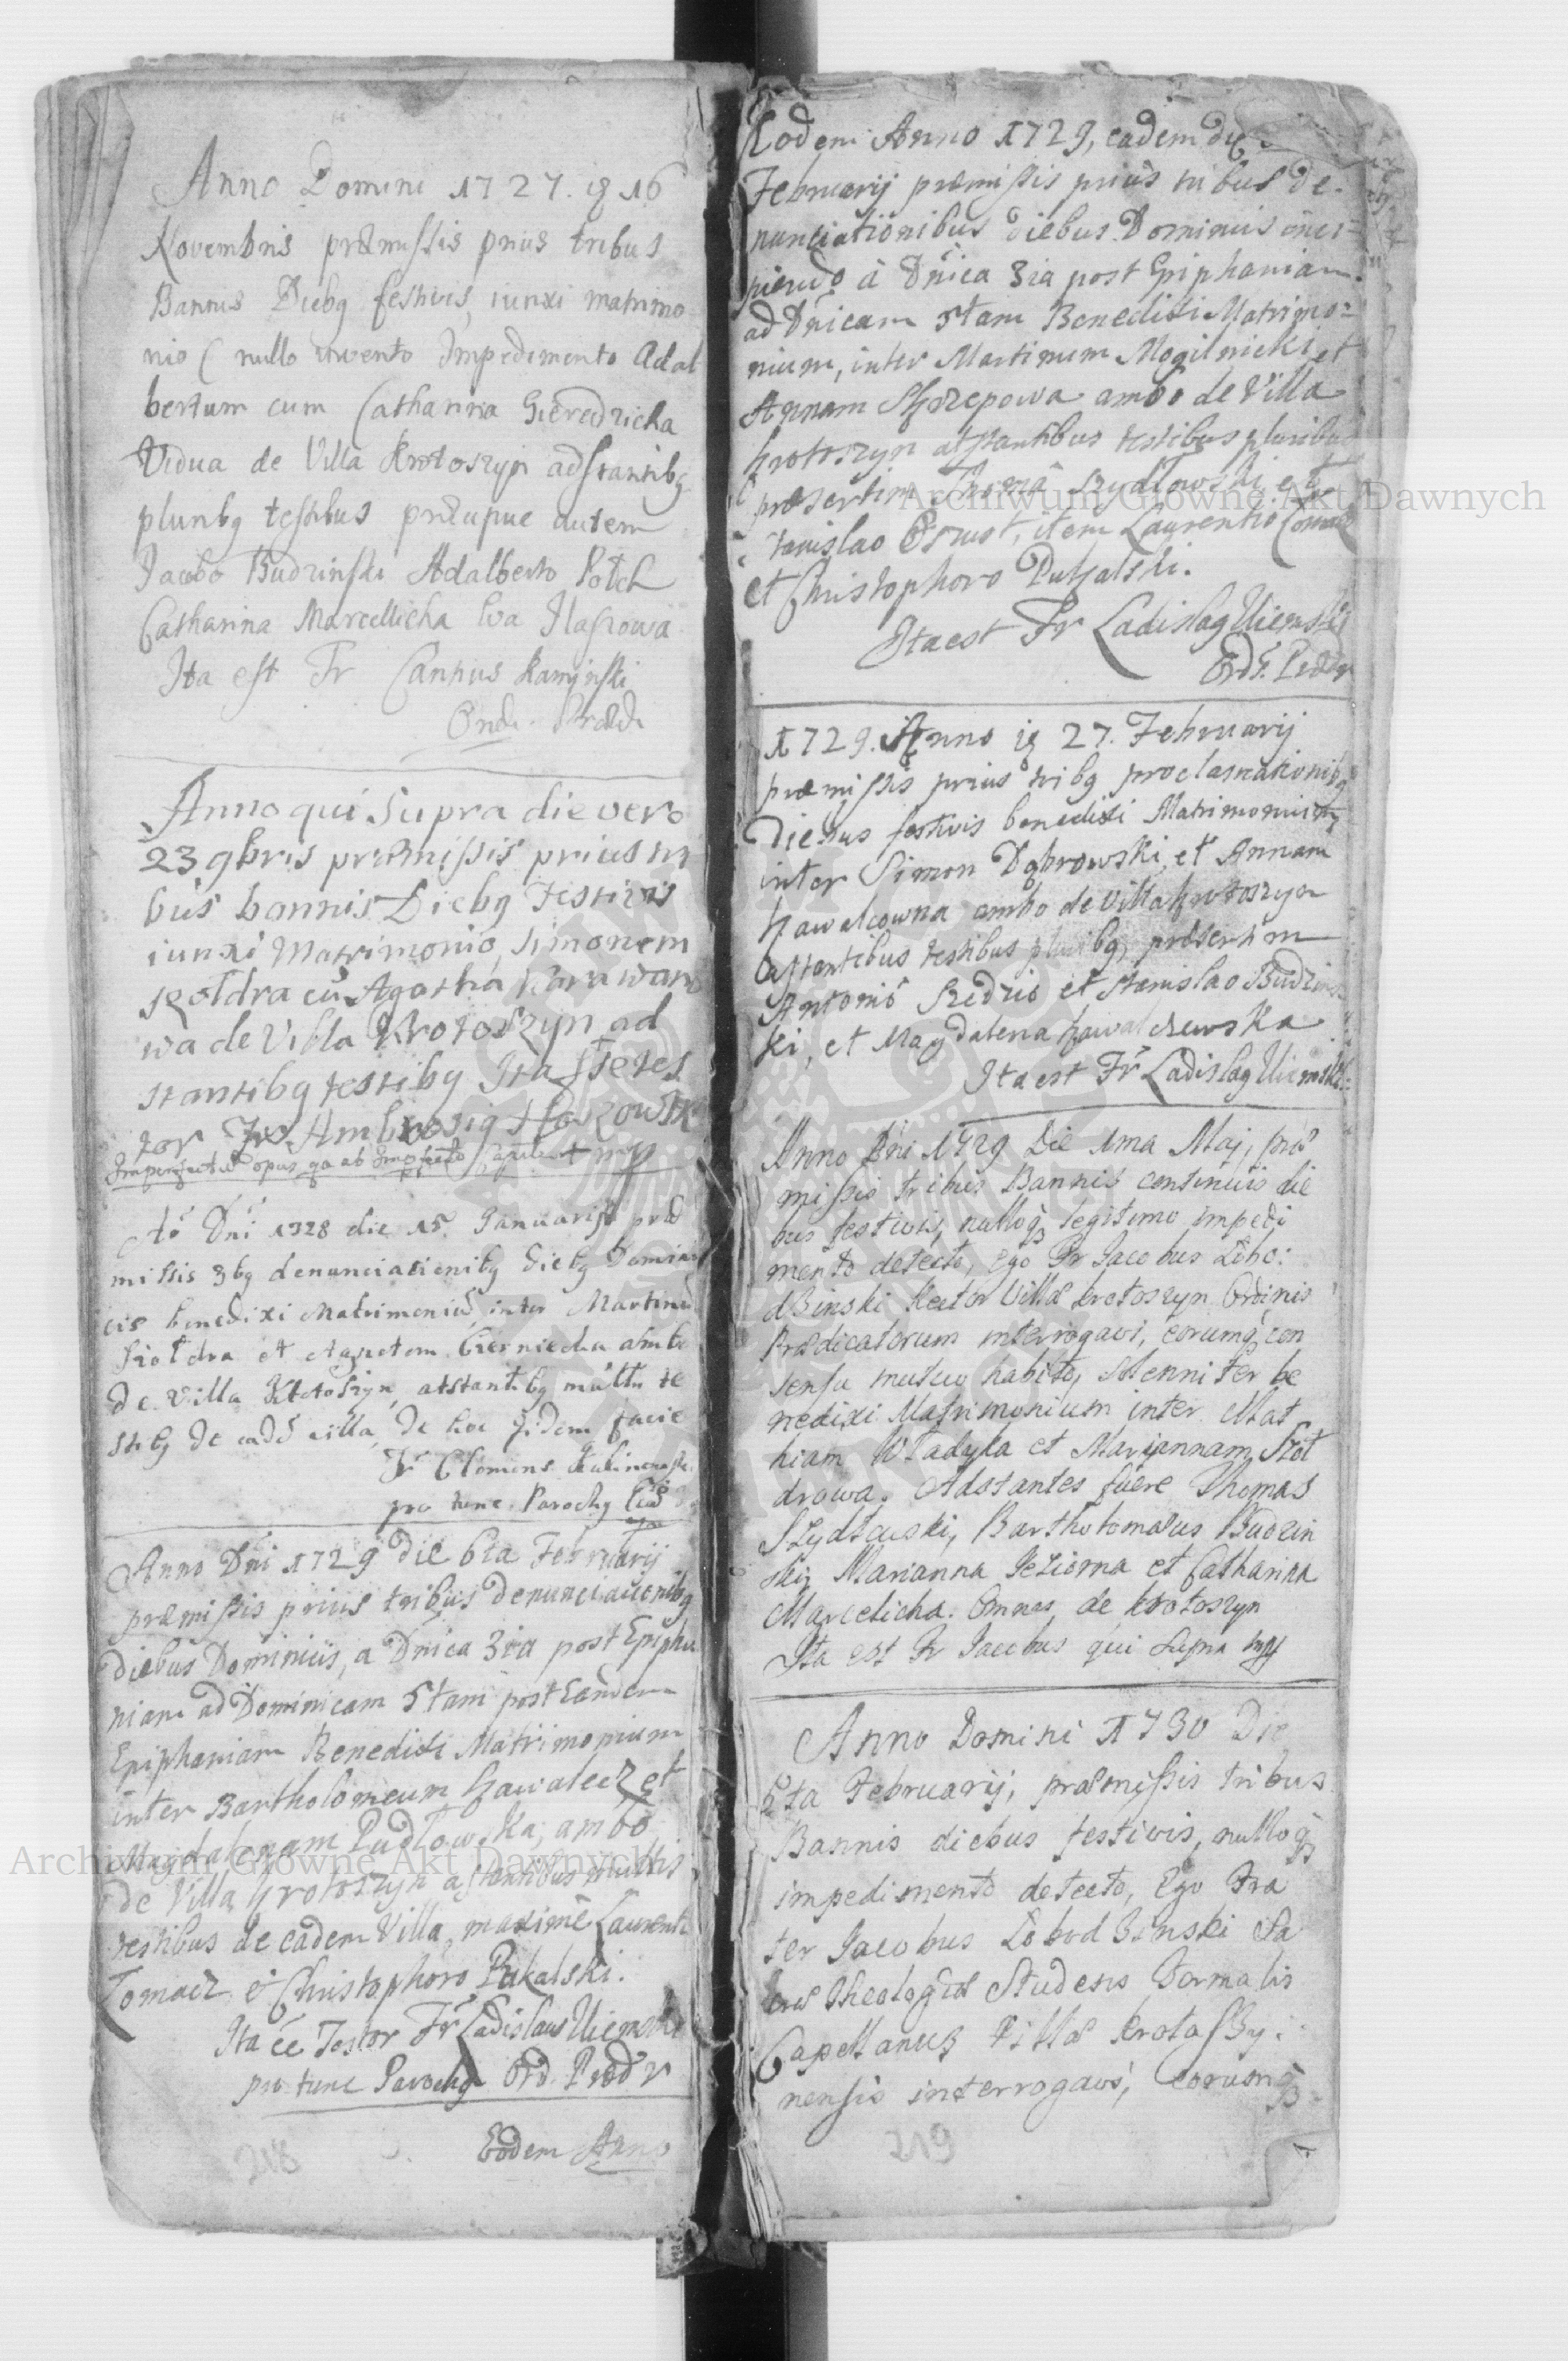 Anno Domini 1727. 16
Novembris præmissis prius tribus
Bannis Diebq festivis, iunxi matrimo
nio ( nullo invento Impedimento Adal
bertum cum Catharina
Vidua de Villa Krotoszyn adstantibq
pluribq testibus præcipue autem
Jacobo Budzinski Adalberto Potch
Catharina Marcellicha Eva
Ita est Fr Kaminski
Anno qui supra die vero
23 9bris præmissis prius tri
bus bannis Diebq Festivis
iunxi Matrimonio, simonem
szoldra cū Agatha
wa de Villa Krotoszyn ad
stantibq testibq Ita esse tes
tor Fr Ambrosiq
Imperfectū opus qa ab Imperfecto
Aō Dni 1728 die 15 Januarij præ
missis 3bq denunciationibq Diebq Domini
cis benedixi Matrimoniū inter Martinū
Szoldra et Agnetem ambo
de Villa Krotoszyn, atstantibq multis te
stibq de eadē villa, de hoc fidem facio
Fr Clemens
pro tunc Parochq
Anno Dni 1729 die 6ta Februarij
præmissis prius tribus denunciationibq
diebus Dominicis, a Dnica 3tia post Epipha
niam ad Dominicam 5tam post Eandem
Epiphaniam Benedixi Matrimonium
inter Bartholomeum Hawalecz et
Magdalenam Pudłowska, ambo
de Villa Krotoszyn astantibus multis
testibus de eadem Villa, maxime Laurenti
Tomacz et Christophoro Pukalski.
Ita ēe Testor Fr Ladislaus
pro tunc Parochq Ord. Prædr
Eodem Anno
218
Eodem Anno 1729, eadem die
Februarij præmissis prius tribus de-
nunciationibus diebus Dominicis inci-
piendo à Dnica 3ia post Epiphaniam
ad Dnicam 5tam Benedixi Matrimo=
nium, inter Martinum Mogilnicki et
Annam ambo de Villa
Krotoszyn atstantibus testibus pluribus
præsertim Thoma Szydłowski et
Stanislao item Laurentio Tomacz
et Christophoro Pukalski.
Ita est Fr Ladislaq
Ord. Prædr
1729. Anno 27. Februarij
præmissis prius tribq proclamationibq
Diebus festivis benedixi Matrimonium
inter Simon Dąbrowski, et Annam
Hawalcowna ambo de Villa Krotoszyn
astantibus testibus pluribq præsertim
Antonio et Stanislao Budzins
ki, et Magdalena
Ita est Fr Ladislaq
Anno Dni 1729 Die 1ma Maj, præ
missis tribus Bannis continuis die
bus festivis, nulloq3 legitimo impedi
mento detecto, ego Fr Jacobus Lobo:
dzinski Rector Villæ Krotoszyn Ordinis
Prædicatorum interrogavi, eorumq3 con
sensu mutuo habito, solenniter be
nedixi Matrimonium inter Mat
hiam Władyka et Mariannam Szoł
drowa. Adstantes fuere Thomas
Szydłowski, Bartholomæus Budzin
ski, Marianna Jeziorna et Catharina
Marcelicha. Omnes de Krotoszyn
Ita est Fr Jacobus qui supra mpp
Anno Domini 1730 Die
5ta Februarij, præmissis tribus
Bannis diebus festivis, nulloq3
impedimento detecto, Ego Fra
ter Jacobus Lobodzinski Sa
cræ Theologiæ Studens Formalis
Capellanus Villæ Krotoszy.
nensis interrogavi, eorumq3
219
Archiwum Główne Akt Dawnych
Archiwum Główne Akt Dawnych